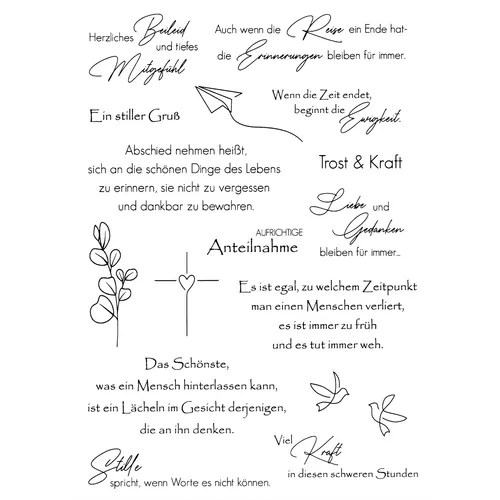 Herzliches Beileid
und tiefes
Mitgefühl
Auch wenn die Reise ein Ende hat-
die Erinnerungen bleiben für immer.
Wenn die Zeit endet,
beginnt die Ewigkeit.
Ein stiller Gruß
Abschied nehmen heißt,
sich an die schönen Dinge des Lebens
zu erinnern, sie nicht zu vergessen
und dankbar zu bewahren.
Trost & Kraft
Liebe und
Gedanken
bleiben für immer...
AUFRICHTIGE
Anteilnahme
Es ist egal, zu welchem Zeitpunkt
man einen Menschen verliert,
es ist immer zu früh
und es tut immer weh.
Das Schönste,
was ein Mensch hinterlassen kann,
ist ein Lächeln im Gesicht derjenigen,
die an ihn denken.
Viel Kraft
in diesen schweren Stunden
Stille
spricht, wenn Worte es nicht können.